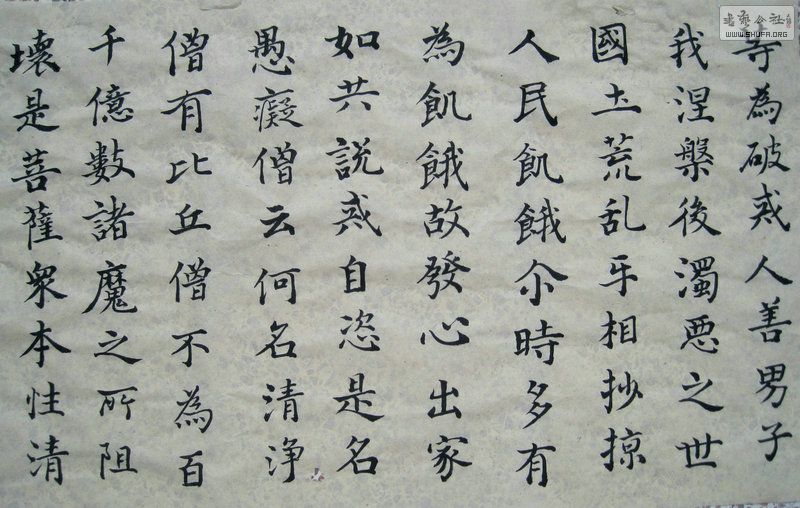 書藝公社
WWW.SHUFA.ORG
等為破戒人善男子
我涅槃後濁悪之世
國土荒乱㸦相抄掠
人民飢餓尒時多有
為飢餓故發心出家
如共說戒自恣是名
愚癡僧云何名清浄
僧有比丘僧不為百
千億數諸魔之所阻
壞是菩薩衆本性清